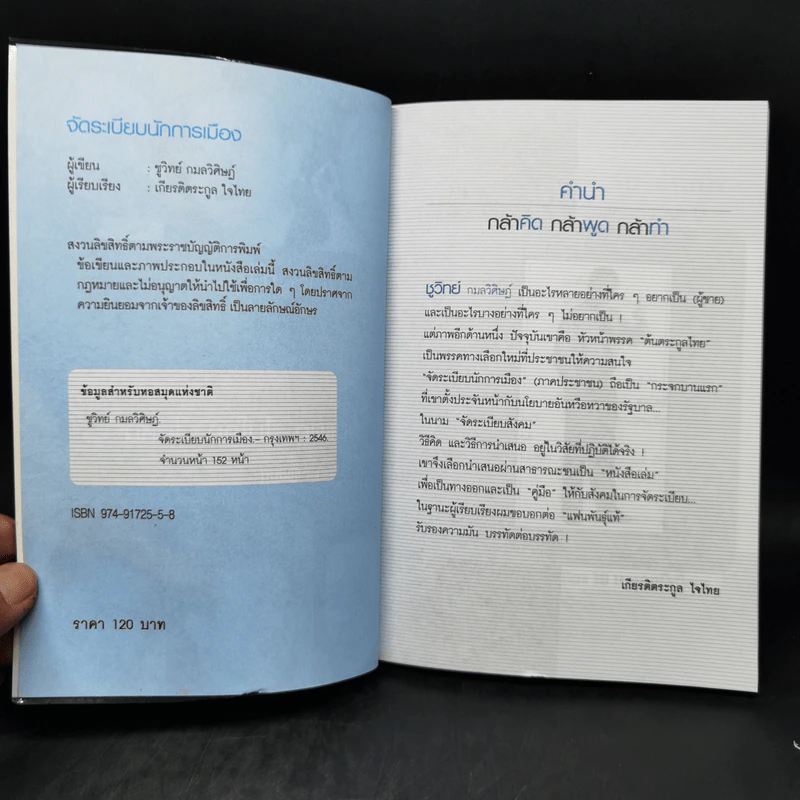 จัดระเบียบนักการเมือง
ผู้เขียน : ชูวิทย์ กมลวิศิษฎ์
ผู้เรียบเรียง : เกียรติตระกูล ใจไทย
สงวนลิขสิทธิ์ตามพระราชบัญญัติการพิมพ์
ข้อเขียนและภาพประกอบในหนังสือเล่มนี้ สงวนลิขสิทธิ์ตาม
กฎหมายและไม่อนุญาตให้นำไปใช้เพื่อการใด ๆ โดยปราศจาก
ความยินยอมจากเจ้าของลิขสิทธิ์ เป็นลายลักษณ์อักษร
ข้อมูลสำหรับหอสมุดแห่งชาติ
ชูวิทย์ กมลวิศิษฎ์.
จัดระเบียบนักการเมือง.– กรุงเทพฯ : 2546.
จำนวนหน้า 152 หน้า
ISBN 974-91725-5-8
ราคา 120 บาท
คำนำ
กล้าคิด กล้าพูด กล้าทำ
ชูวิทย์ กมลวิศิษฎ์ เป็นอะไรหลายอย่างที่ใคร ๆ อยากเป็น (ผู้ชาย)
และเป็นอะไรบางอย่างที่ใคร ๆ ไม่อยากเป็น !
แต่ภาพอีกด้านหนึ่ง ปัจจุบันเขาคือ หัวหน้าพรรค "ต้นตระกูลไทย"
เป็นพรรคทางเลือกใหม่ที่ประชาชนให้ความสนใจ
"จัดระเบียบนักการเมือง" (ภาคประชาชน) ถือเป็น "กระจกบานแรก"
ที่เขาตั้งประจันหน้ากับนโยบายอันหวือหวาของรัฐบาล...
ในนาม "จัดระเบียบสังคม"
วิธีคิด และวิธีการนำเสนอ อยู่ในวิสัยที่ปฏิบัติได้จริง !
เขาจึงเลือกนำเสนอผ่านสาธารณะชนเป็น "หนังสือเล่ม"
เพื่อเป็นทางออกและเป็น "คู่มือ" ให้กับสังคมในการจัดระเบียบ...
ในฐานะผู้เรียบเรียงผมขอบอกต่อ "แฟนพันธุ์แท้"
รับรองความมัน บรรทัดต่อบรรทัด !
เกียรติตระกูล ใจไทย